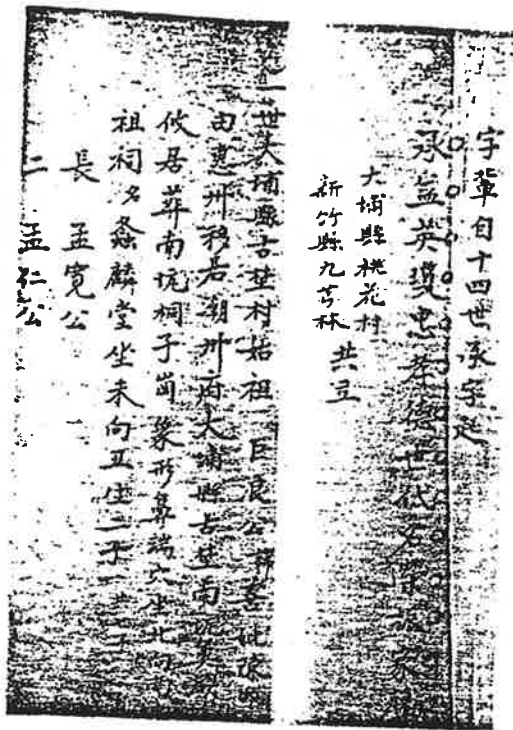 字輩自十四世承字起
承孟英瓊忠孝德世代名
大埔縣桃花村
新竹縣九芎林
共立
一世大埔縣古埜村始祖 巨良公
由惠州移居潮州府大埔縣古埜南坑
攸居葬南坑桐子崗象形鼻端穴坐北向
祖祠名螽麟堂坐未向丑生二子
長 孟寬公
二 孟仁公